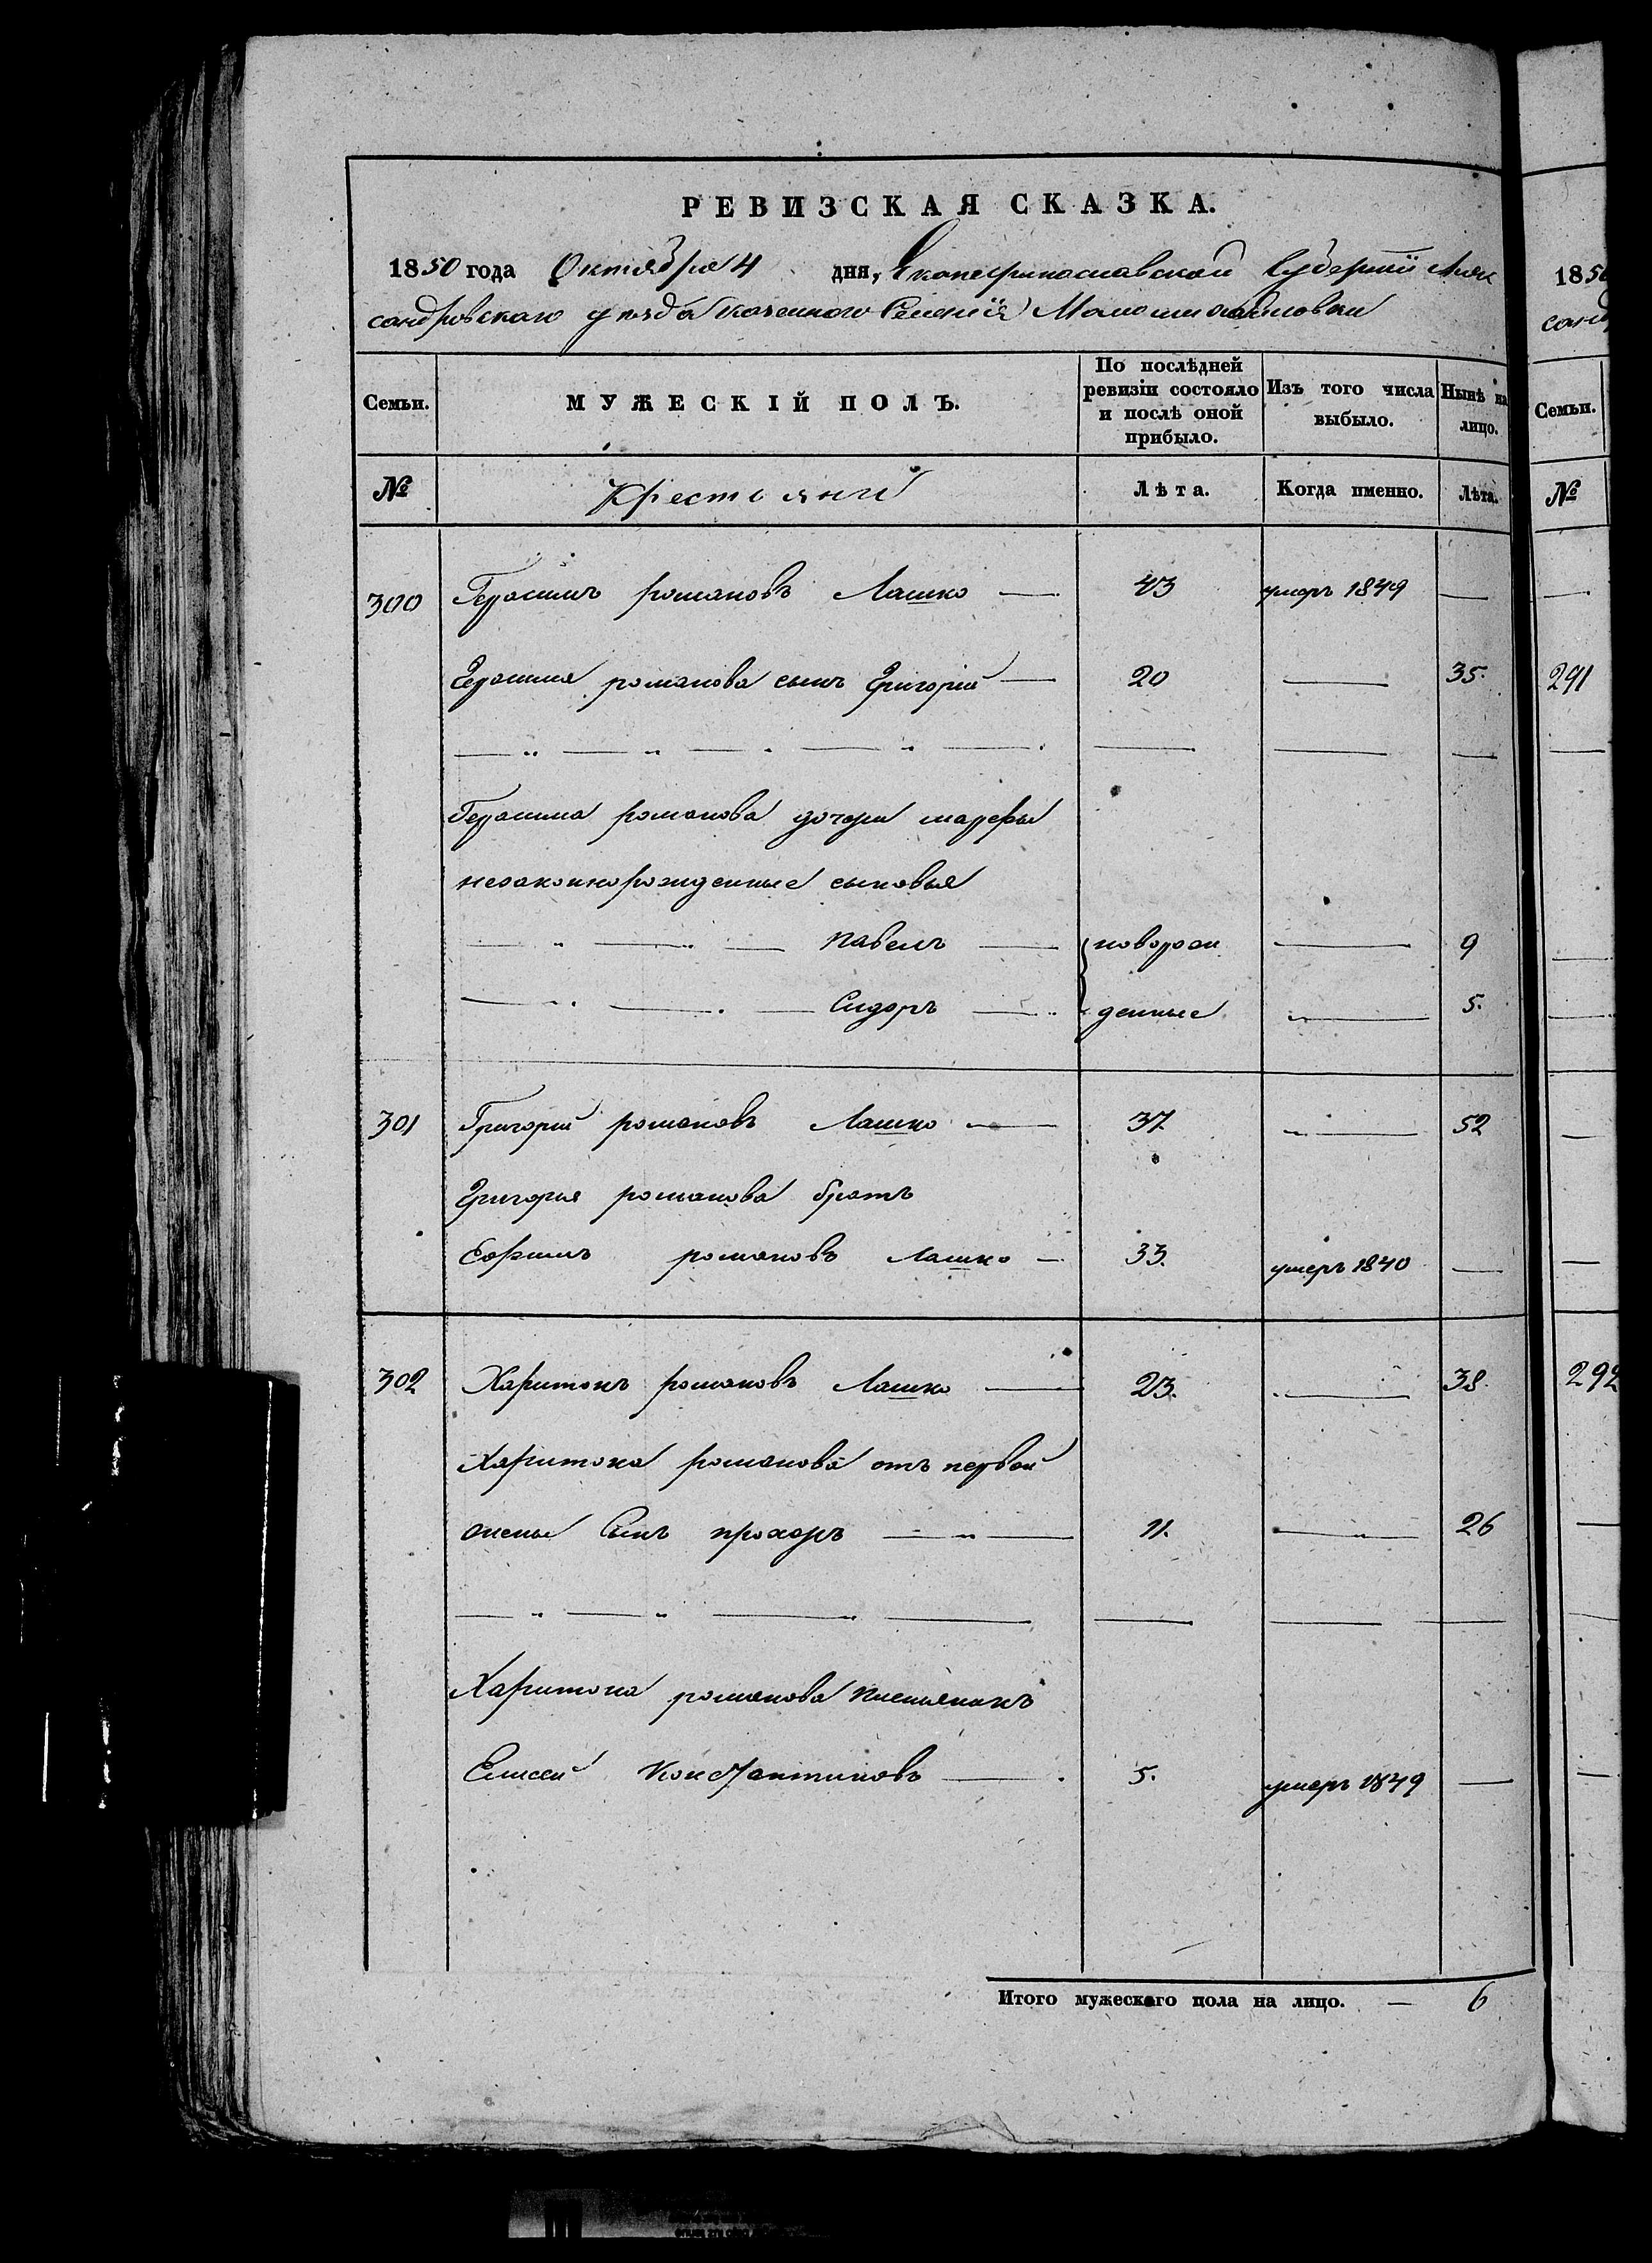 РЕВИЗСКАЯ СКАЗКА.
1850 года Октября 4 дня, Екатеринославской Губернїи Алек
сандровскаго уезда казенного Селенїя Маломихайловки
Семьи. МУЖЕСКІЙ ПОЛЪ. По послѣдней ревизіи состояло и послѣ оной прибыло. Изъ того числа выбыло. Нынѣ на лицо.
№ Крестьяне Лѣта. Когда именно. Лѣта.
300 Герасимъ романовъ Лашко — 43 умеръ 1849 —
Герасима романова сынъ Григорій — 20 — 35.
Герасима романова дочери марфы
незаконнорожденные сыновья
Павелъ — новорож — 9
Сидоръ — денные — 5.
301 Григорій романовъ Лашко — 37 — 52
Григорья романова братъ
Ефимъ романовъ Лашко — 33. умеръ 1840 —
302 Харитонъ романовъ Лашко — 23. — 38.
Харитона романова отъ первой
жены Сынъ прохоръ — 11. — 26
Харитона романова племянникъ
Елисей Константиновъ — 5. умеръ 1849 —
Итого мужескаго пола на лицо. — 6
1850
санд
Семьи.
№
291
292